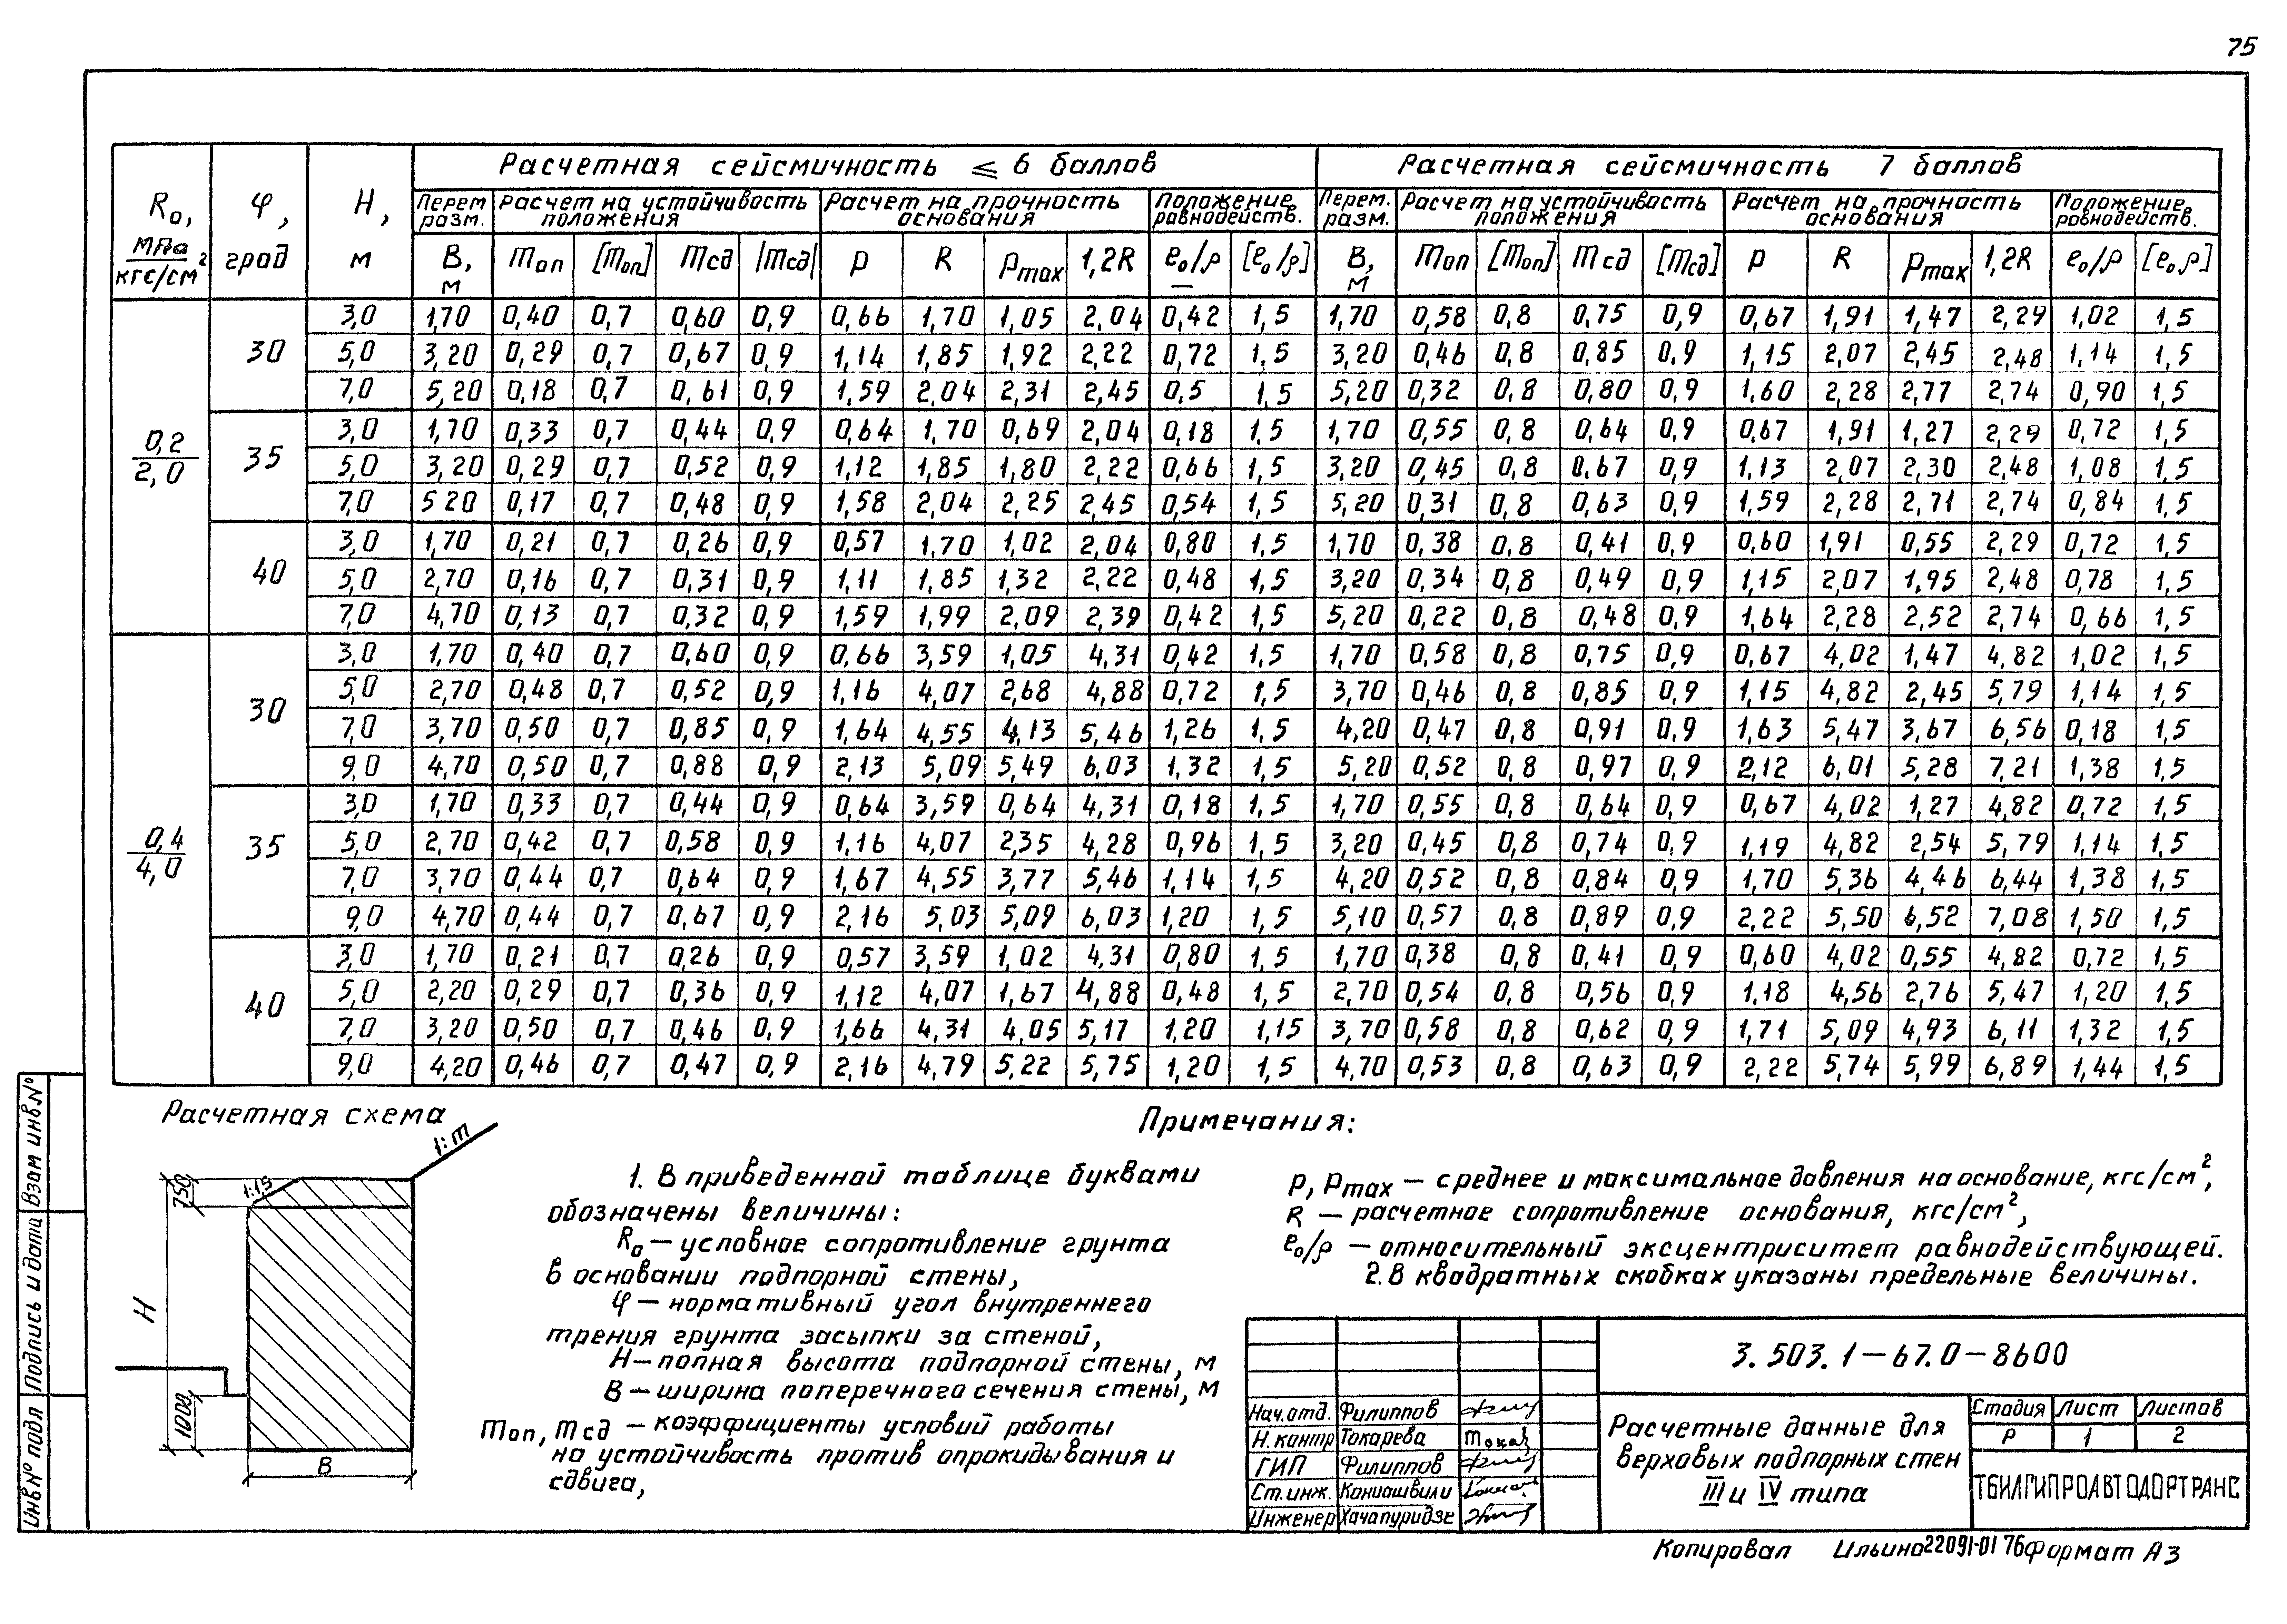 75
Расчетная сейсмичность ≤ 6 баллов | Расчетная сейсмичность 7 баллов
R₀, МПа/кгс/см² | φ, град | H, м | Перем разм. | Расчет на устойчивость положения | Расчет на прочность основания | Положение равнодейств. | Перем. разм. | Расчет на устойчивость положения | Расчет на прочность основания | Положение равнодейств.
B, м | mоп | [mоп] | mсд | |mсд| | p | R | pmax | 1,2R | e₀/ρ | [e₀/ρ] | B, м | mоп | [mоп] | mсд | [mсд] | p | R | pmax | 1,2R | e₀/ρ | [e₀ρ]
0,2/2,0 | 30 | 3,0 | 1,70 | 0,40 | 0,7 | 0,60 | 0,9 | 0,66 | 1,70 | 1,05 | 2,04 | 0,42 | 1,5 | 1,70 | 0,58 | 0,8 | 0,75 | 0,9 | 0,67 | 1,91 | 1,47 | 2,29 | 1,02 | 1,5
5,0 | 3,20 | 0,29 | 0,7 | 0,67 | 0,9 | 1,14 | 1,85 | 1,92 | 2,22 | 0,72 | 1,5 | 3,20 | 0,46 | 0,8 | 0,85 | 0,9 | 1,15 | 2,07 | 2,45 | 2,48 | 1,14 | 1,5
7,0 | 5,20 | 0,18 | 0,7 | 0,61 | 0,9 | 1,59 | 2,04 | 2,31 | 2,45 | 0,5 | 1,5 | 5,20 | 0,32 | 0,8 | 0,80 | 0,9 | 1,60 | 2,28 | 2,77 | 2,74 | 0,90 | 1,5
35 | 3,0 | 1,70 | 0,33 | 0,7 | 0,44 | 0,9 | 0,64 | 1,70 | 0,69 | 2,04 | 0,18 | 1,5 | 1,70 | 0,55 | 0,8 | 0,64 | 0,9 | 0,67 | 1,91 | 1,27 | 2,29 | 0,72 | 1,5
5,0 | 3,20 | 0,29 | 0,7 | 0,52 | 0,9 | 1,12 | 1,85 | 1,80 | 2,22 | 0,66 | 1,5 | 3,20 | 0,45 | 0,8 | 0,67 | 0,9 | 1,13 | 2,07 | 2,30 | 2,48 | 1,08 | 1,5
7,0 | 5 20 | 0,17 | 0,7 | 0,48 | 0,9 | 1,58 | 2,04 | 2,25 | 2,45 | 0,54 | 1,5 | 5,20 | 0,31 | 0,8 | 0,63 | 0,9 | 1,59 | 2,28 | 2,71 | 2,74 | 0,84 | 1,5
40 | 3,0 | 1,70 | 0,21 | 0,7 | 0,26 | 0,9 | 0,57 | 1,70 | 1,02 | 2,04 | 0,80 | 1,5 | 1,70 | 0,38 | 0,8 | 0,41 | 0,9 | 0,60 | 1,91 | 0,55 | 2,29 | 0,72 | 1,5
5,0 | 2,70 | 0,16 | 0,7 | 0,31 | 0,9 | 1,11 | 1,85 | 1,32 | 2,22 | 0,48 | 1,5 | 3,20 | 0,34 | 0,8 | 0,49 | 0,9 | 1,15 | 2,07 | 1,95 | 2,48 | 0,78 | 1,5
7,0 | 4,70 | 0,13 | 0,7 | 0,32 | 0,9 | 1,59 | 1,99 | 2,09 | 2,39 | 0,42 | 1,5 | 5,20 | 0,22 | 0,8 | 0,48 | 0,9 | 1,64 | 2,28 | 2,52 | 2,74 | 0,66 | 1,5
0,4/4,0 | 30 | 3,0 | 1,70 | 0,40 | 0,7 | 0,60 | 0,9 | 0,66 | 3,59 | 1,05 | 4,31 | 0,42 | 1,5 | 1,70 | 0,58 | 0,8 | 0,75 | 0,9 | 0,67 | 4,02 | 1,47 | 4,82 | 1,02 | 1,5
5,0 | 2,70 | 0,48 | 0,7 | 0,52 | 0,9 | 1,16 | 4,07 | 2,68 | 4,88 | 0,72 | 1,5 | 3,70 | 0,46 | 0,8 | 0,85 | 0,9 | 1,15 | 4,82 | 2,45 | 5,79 | 1,14 | 1,5
7,0 | 3,70 | 0,50 | 0,7 | 0,85 | 0,9 | 1,64 | 4,55 | 4,13 | 5,46 | 1,26 | 1,5 | 4,20 | 0,47 | 0,8 | 0,91 | 0,9 | 1,63 | 5,47 | 3,67 | 6,56 | 0,18 | 1,5
9,0 | 4,70 | 0,50 | 0,7 | 0,88 | 0,9 | 2,13 | 5,09 | 5,49 | 6,03 | 1,32 | 1,5 | 5,20 | 0,52 | 0,8 | 0,97 | 0,9 | 2,12 | 6,01 | 5,28 | 7,21 | 1,38 | 1,5
35 | 3,0 | 1,70 | 0,33 | 0,7 | 0,44 | 0,9 | 0,64 | 3,59 | 0,64 | 4,31 | 0,18 | 1,5 | 1,70 | 0,55 | 0,8 | 0,64 | 0,9 | 0,67 | 4,02 | 1,27 | 4,82 | 0,72 | 1,5
5,0 | 2,70 | 0,42 | 0,7 | 0,58 | 0,9 | 1,16 | 4,07 | 2,35 | 4,28 | 0,96 | 1,5 | 3,20 | 0,45 | 0,8 | 0,74 | 0,9 | 1,19 | 4,82 | 2,54 | 5,79 | 1,14 | 1,5
7,0 | 3,70 | 0,44 | 0,7 | 0,64 | 0,9 | 1,67 | 4,55 | 3,77 | 5,46 | 1,14 | 1,5 | 4,20 | 0,52 | 0,8 | 0,84 | 0,9 | 1,70 | 5,36 | 4,46 | 6,44 | 1,38 | 1,5
9,0 | 4,70 | 0,44 | 0,7 | 0,67 | 0,9 | 2,16 | 5,03 | 5,09 | 6,03 | 1,20 | 1,5 | 5,10 | 0,57 | 0,8 | 0,89 | 0,9 | 2,22 | 5,50 | 6,52 | 7,08 | 1,50 | 1,5
40 | 3,0 | 1,70 | 0,21 | 0,7 | 0,26 | 0,9 | 0,57 | 3,59 | 1,02 | 4,31 | 0,80 | 1,5 | 1,70 | 0,38 | 0,8 | 0,41 | 0,9 | 0,60 | 4,02 | 0,55 | 4,82 | 0,72 | 1,5
5,0 | 2,20 | 0,29 | 0,7 | 0,36 | 0,9 | 1,12 | 4,07 | 1,67 | 4,88 | 0,48 | 1,5 | 2,70 | 0,54 | 0,8 | 0,56 | 0,9 | 1,18 | 4,56 | 2,76 | 5,47 | 1,20 | 1,5
7,0 | 3,20 | 0,50 | 0,7 | 0,46 | 0,9 | 1,66 | 4,31 | 4,05 | 5,17 | 1,20 | 1,15 | 3,70 | 0,58 | 0,8 | 0,62 | 0,9 | 1,71 | 5,09 | 4,93 | 6,11 | 1,32 | 1,5
9,0 | 4,20 | 0,46 | 0,7 | 0,47 | 0,9 | 2,16 | 4,79 | 5,22 | 5,75 | 1,20 | 1,5 | 4,70 | 0,53 | 0,8 | 0,63 | 0,9 | 2,22 | 5,74 | 5,99 | 6,89 | 1,44 | 1,5
Расчетная схема
1:m
1:1,5
750
H
1000
B
Примечания:
1. В приведенной таблице буквами
обозначены величины:
R₀ — условное сопротивление грунта
в основании подпорной стены,
φ — нормативный угол внутреннего
трения грунта засыпки за стеной,
H — полная высота подпорной стены, м
B — ширина поперечного сечения стены, м
mоп, mсд — коэффициенты условий работы
на устойчивость против опрокидывания и
сдвига,
p, pmax — среднее и максимальное давления на основание, кгс/см²,
R — расчетное сопротивление основания, кгс/см²,
e₀/ρ — относительный эксцентриситет равнодействующей.
2. В квадратных скобках указаны предельные величины.
3.503.1—67.0—8600
Нач.отд. Филиппов
Н.контр Токарева Токар
ГИП Филиппов
Ст.инж. Кониашвили
Инженер Хачапуридзе
Расчетные данные для
верховых подпорных стен
III и IV типа
Стадия Лист Листов
Р 1 2
ТБИЛГИПРОАВТОДОРТРАНС
Копировал Ильина 22091-01 76 Формат А3
Инв № подл Подпись и дата Взам инв №